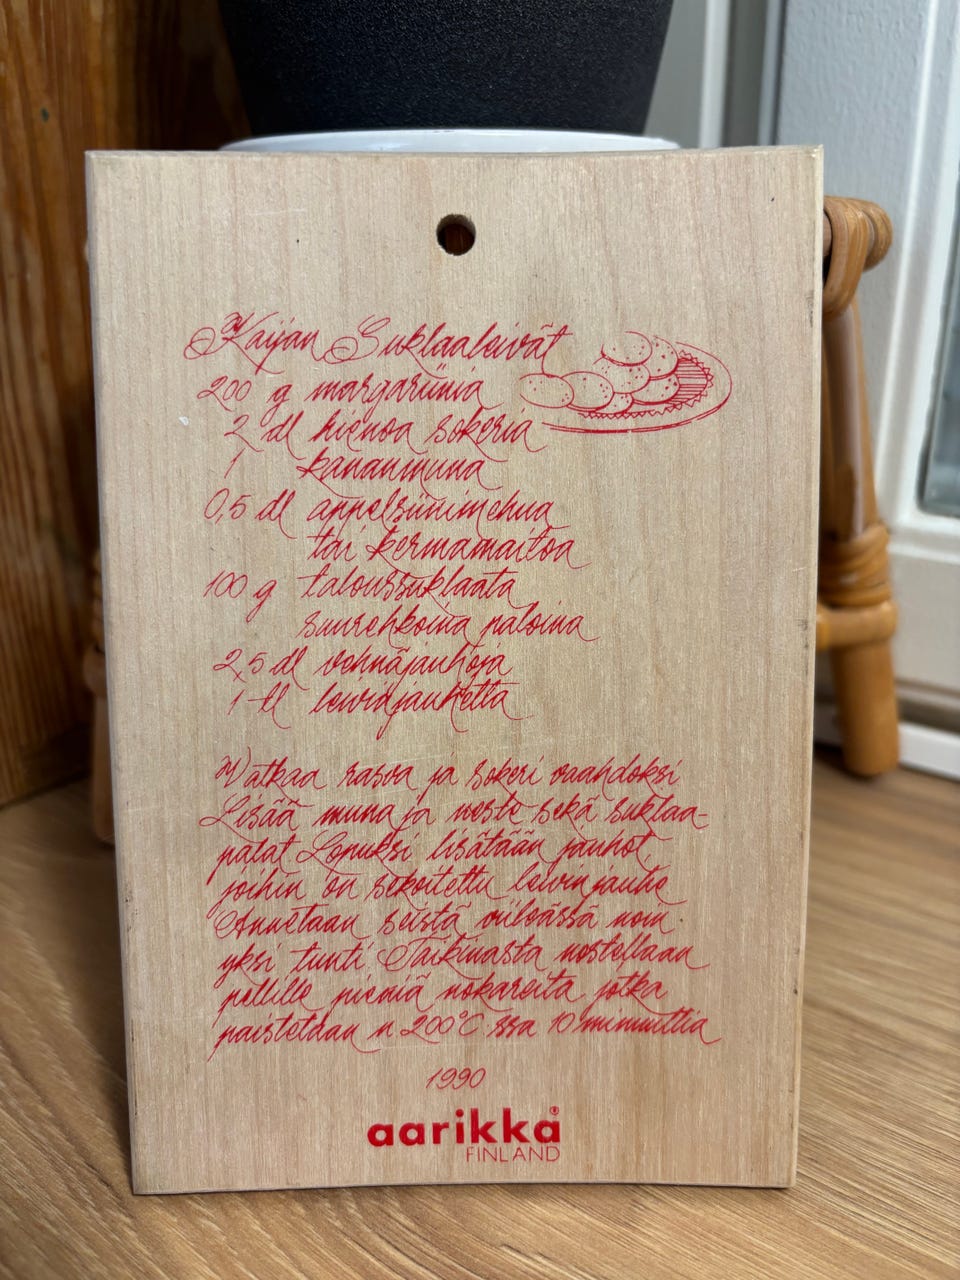 Kaijan Suklaaleivät
200 g margariinia
2 dl hienoa sokeria
1 kananmuna
0,5 dl appelsiinimehua
tai kermamaitoa
100 g taloussuklaata
suurehkoina paloina
2,5 dl vehnäjauhoja
1 tl leivinjauhetta
Vatkaa rasva ja sokeri vaahdoksi
Lisää muna ja neste sekä suklaa-
palat Lopuksi lisätään jauhot
joihin on sekoitettu leivinjauhe
Annetaan seistä viileässä noin
yksi tunti Taikinasta nostellaan
pellille pieniä nokareita jotka
paistetaan n 200°C ssa 10 minuuttia
1990
aarikka®
FINLAND